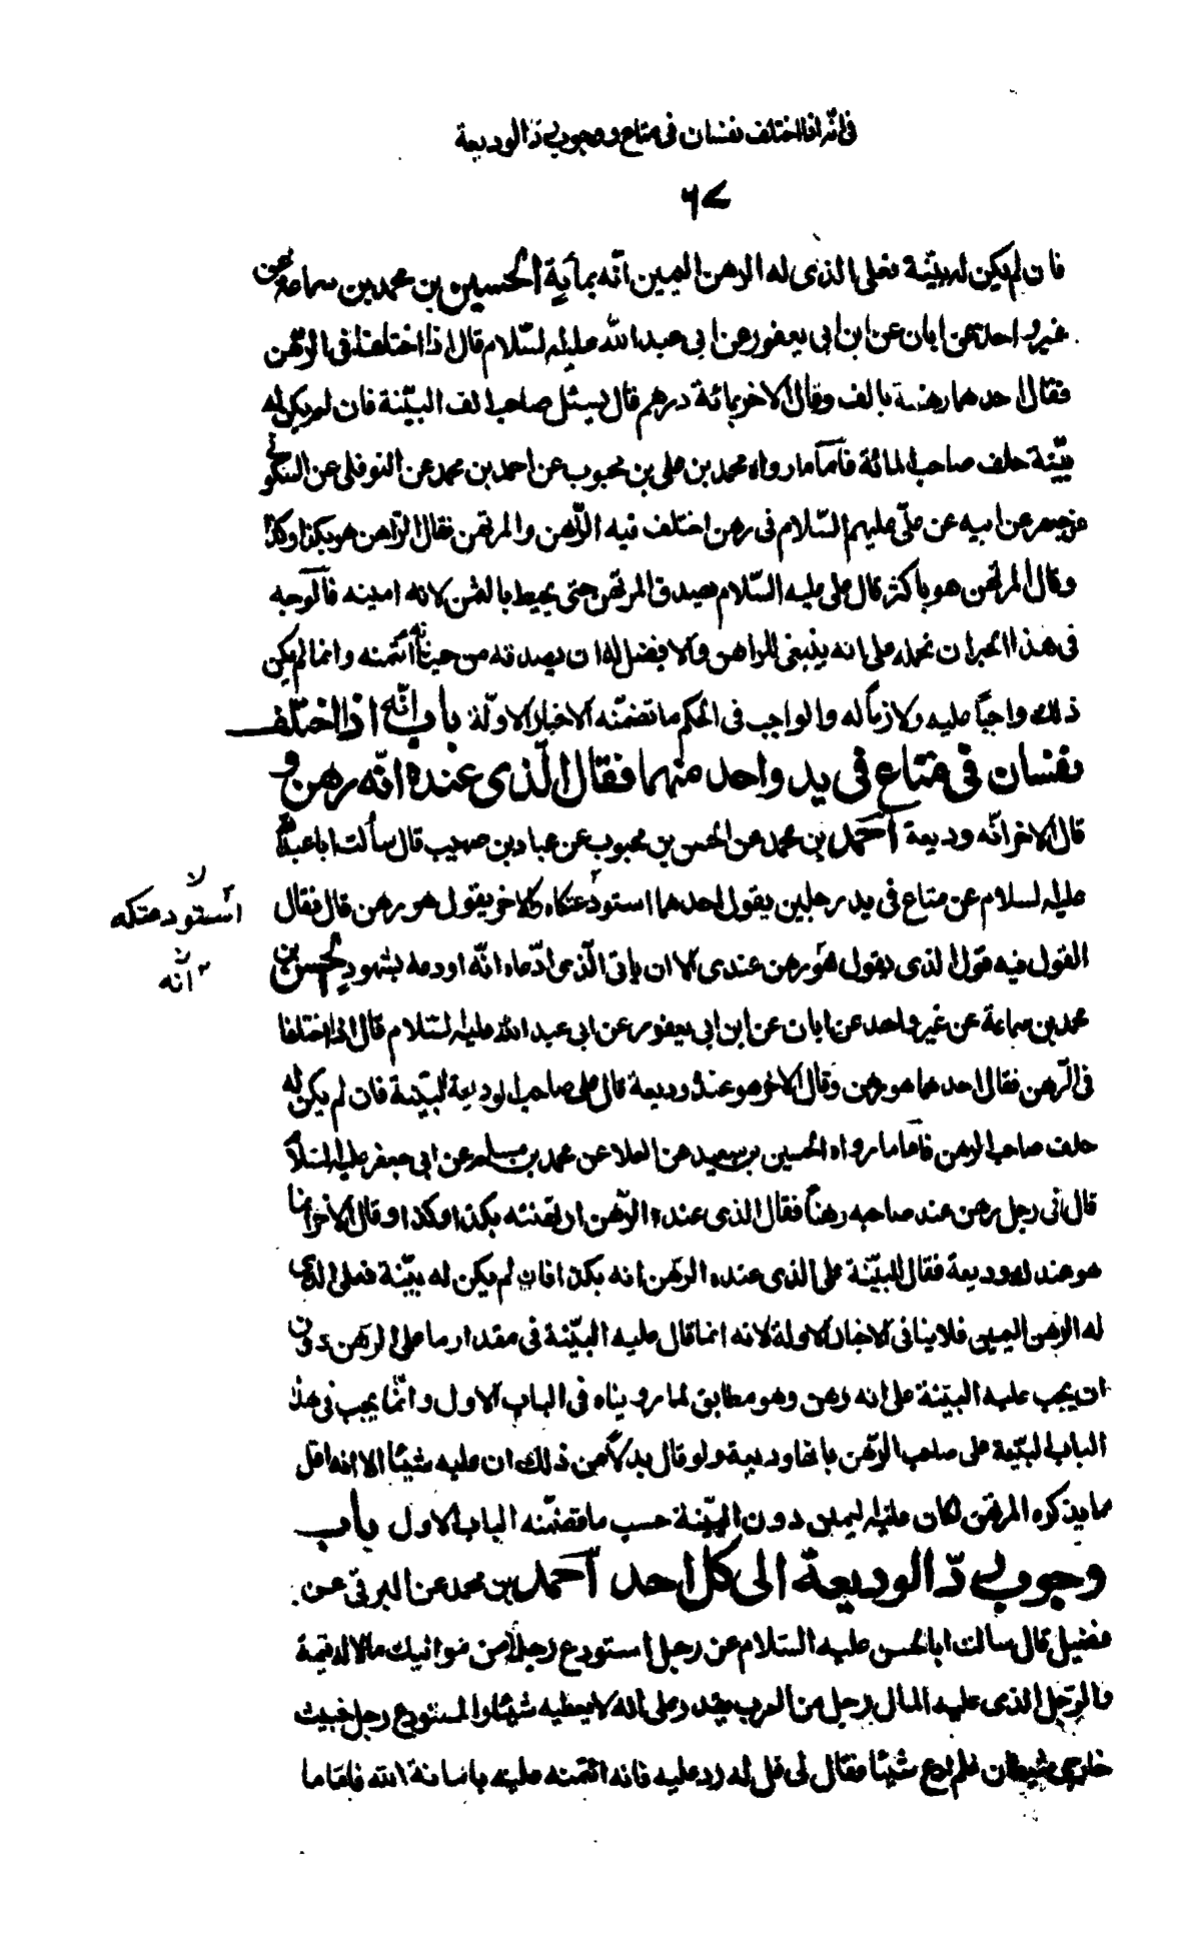 فى انّه اذا اختلف نفسان فى متاع ووجوب ردّ الوديعة
٦٧
فان لم يكن له بيّنة فعلى الذى له الرهن اليمين انّه بمائة الحسين بن محمد بن سماعة عن
غير واحد عن ابان عن ابن ابى يعفور عن ابى عبد الله عليه السّلام قال اذا اختلفا فى الرّهن
فقال احدهما رهنته بالف وقال الاخر بمائة درهم قال يسئل صاحب الالف البيّنة فان لم يكن له
بيّنة حلف صاحب المائة فامّا ما رواه محمد بن على بن محبوب عن احمد بن محمد عن النوفلى عن السكونى
عن جعفر عن ابيه عن علىّ عليهم السّلام فى رهن اختلف فيه الرّاهن والمرتهن فقال الرّاهن هو بكذا وكذا
وقال المرتهن هو باكثر قال على عليه السّلام يصدق المرتهن حتى يحيط بالثمن لانه امينه فالوجه
فى هذا الخبر ان نحمله على انه ينبغى للراهن والافضل له ان يصدقه من حيث انه ائتمنه وانما لم يكن
ذلك واجبًا عليه ولازمًا له والواجب فى الحكم ما تضمّنه الاخبار الاوّلة باب انّه اذا اختلف
نفسان فى متاع فى يد واحد منهما فقال الّذى عنده انّه رهن و
قال الاخر انّه وديعة احمد بن محمد عن الحسن بن محبوب عن عباد بن صهيب قال سألت ابا عبد الله
عليه السلام عن متاع فى يد رجلين يقول احدهما استودعتكاه والاخر يقول هو رهن قال فقال
استودعتكه
القول فيه قول الذى يقول هو رهن عندى الا ان ياتى الّذى ادّعاه انّه اودعه بشهود الحسن بن
انّه
محمد بن سماعة عن غير واحد عن ابان عن ابن ابى يعفور عن ابى عبد الله عليه السّلام قال اذا اختلفا
فى الرّهن فقال احدهما هو رهن وقال الاخر هو عندك وديعة قال على صاحب الوديعة البيّنة فان لم يكن له
حلف صاحب الرهن فامّا ما رواه الحسين بن سعيد عن العلا عن محمد بن مسلم عن ابى جعفر عليه السّلام
قال فى رجل رهن عند صاحبه رهنًا فقال الذى عنده الرّهن ارتهنته بكذا وكذا وقال الاخر انما
هو عندك وديعة فقال البيّنة على الذى عنده الرّهن انه بكذا فان لم يكن له بيّنة فعلى الذى
له الرّهن اليمين فلا ينافى الاخبار الاولة لانه انما قال عليه البيّنة فى مقدار ما على الرّهن دون
ان يجب عليه البيّنة على انه رهن وهو مطابق لما رويناه فى الباب الاول وانّما يجب فى هذا
الباب البيّنة على صاحب الرّهن بانها وديعة ولو قال بدلًا من ذلك ان عليه شيئًا الا انه اقل
مما يذكره المرتهن لكان عليه اليمين دون البيّنة حسب ما تضمّنه الباب الاول باب
وجوب ردّ الوديعة الى كل احد احمد بن محمد عن البرقى عن
فضيل قال سالت ابا الحسن عليه السلام عن رجل استودع رجلًا من مواليك مالا له قيمة
والرّجل الذى عليه المال رجل من العرب يقدر على ان لا يعطيه شيئًا والمستودع رجل خبيث
خارجى شيطان فلم ادع شيئًا فقال لى قل له رد عليه فانه ائتمنه عليه بامانة الله فامّا ما